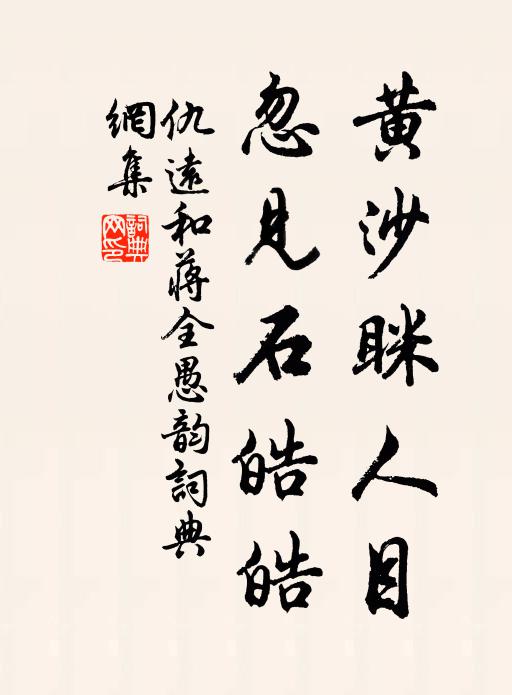 黃沙眯人目
忽見石皓皓
仇遠和蔣全愚韵詞典
網集
詞典
网印